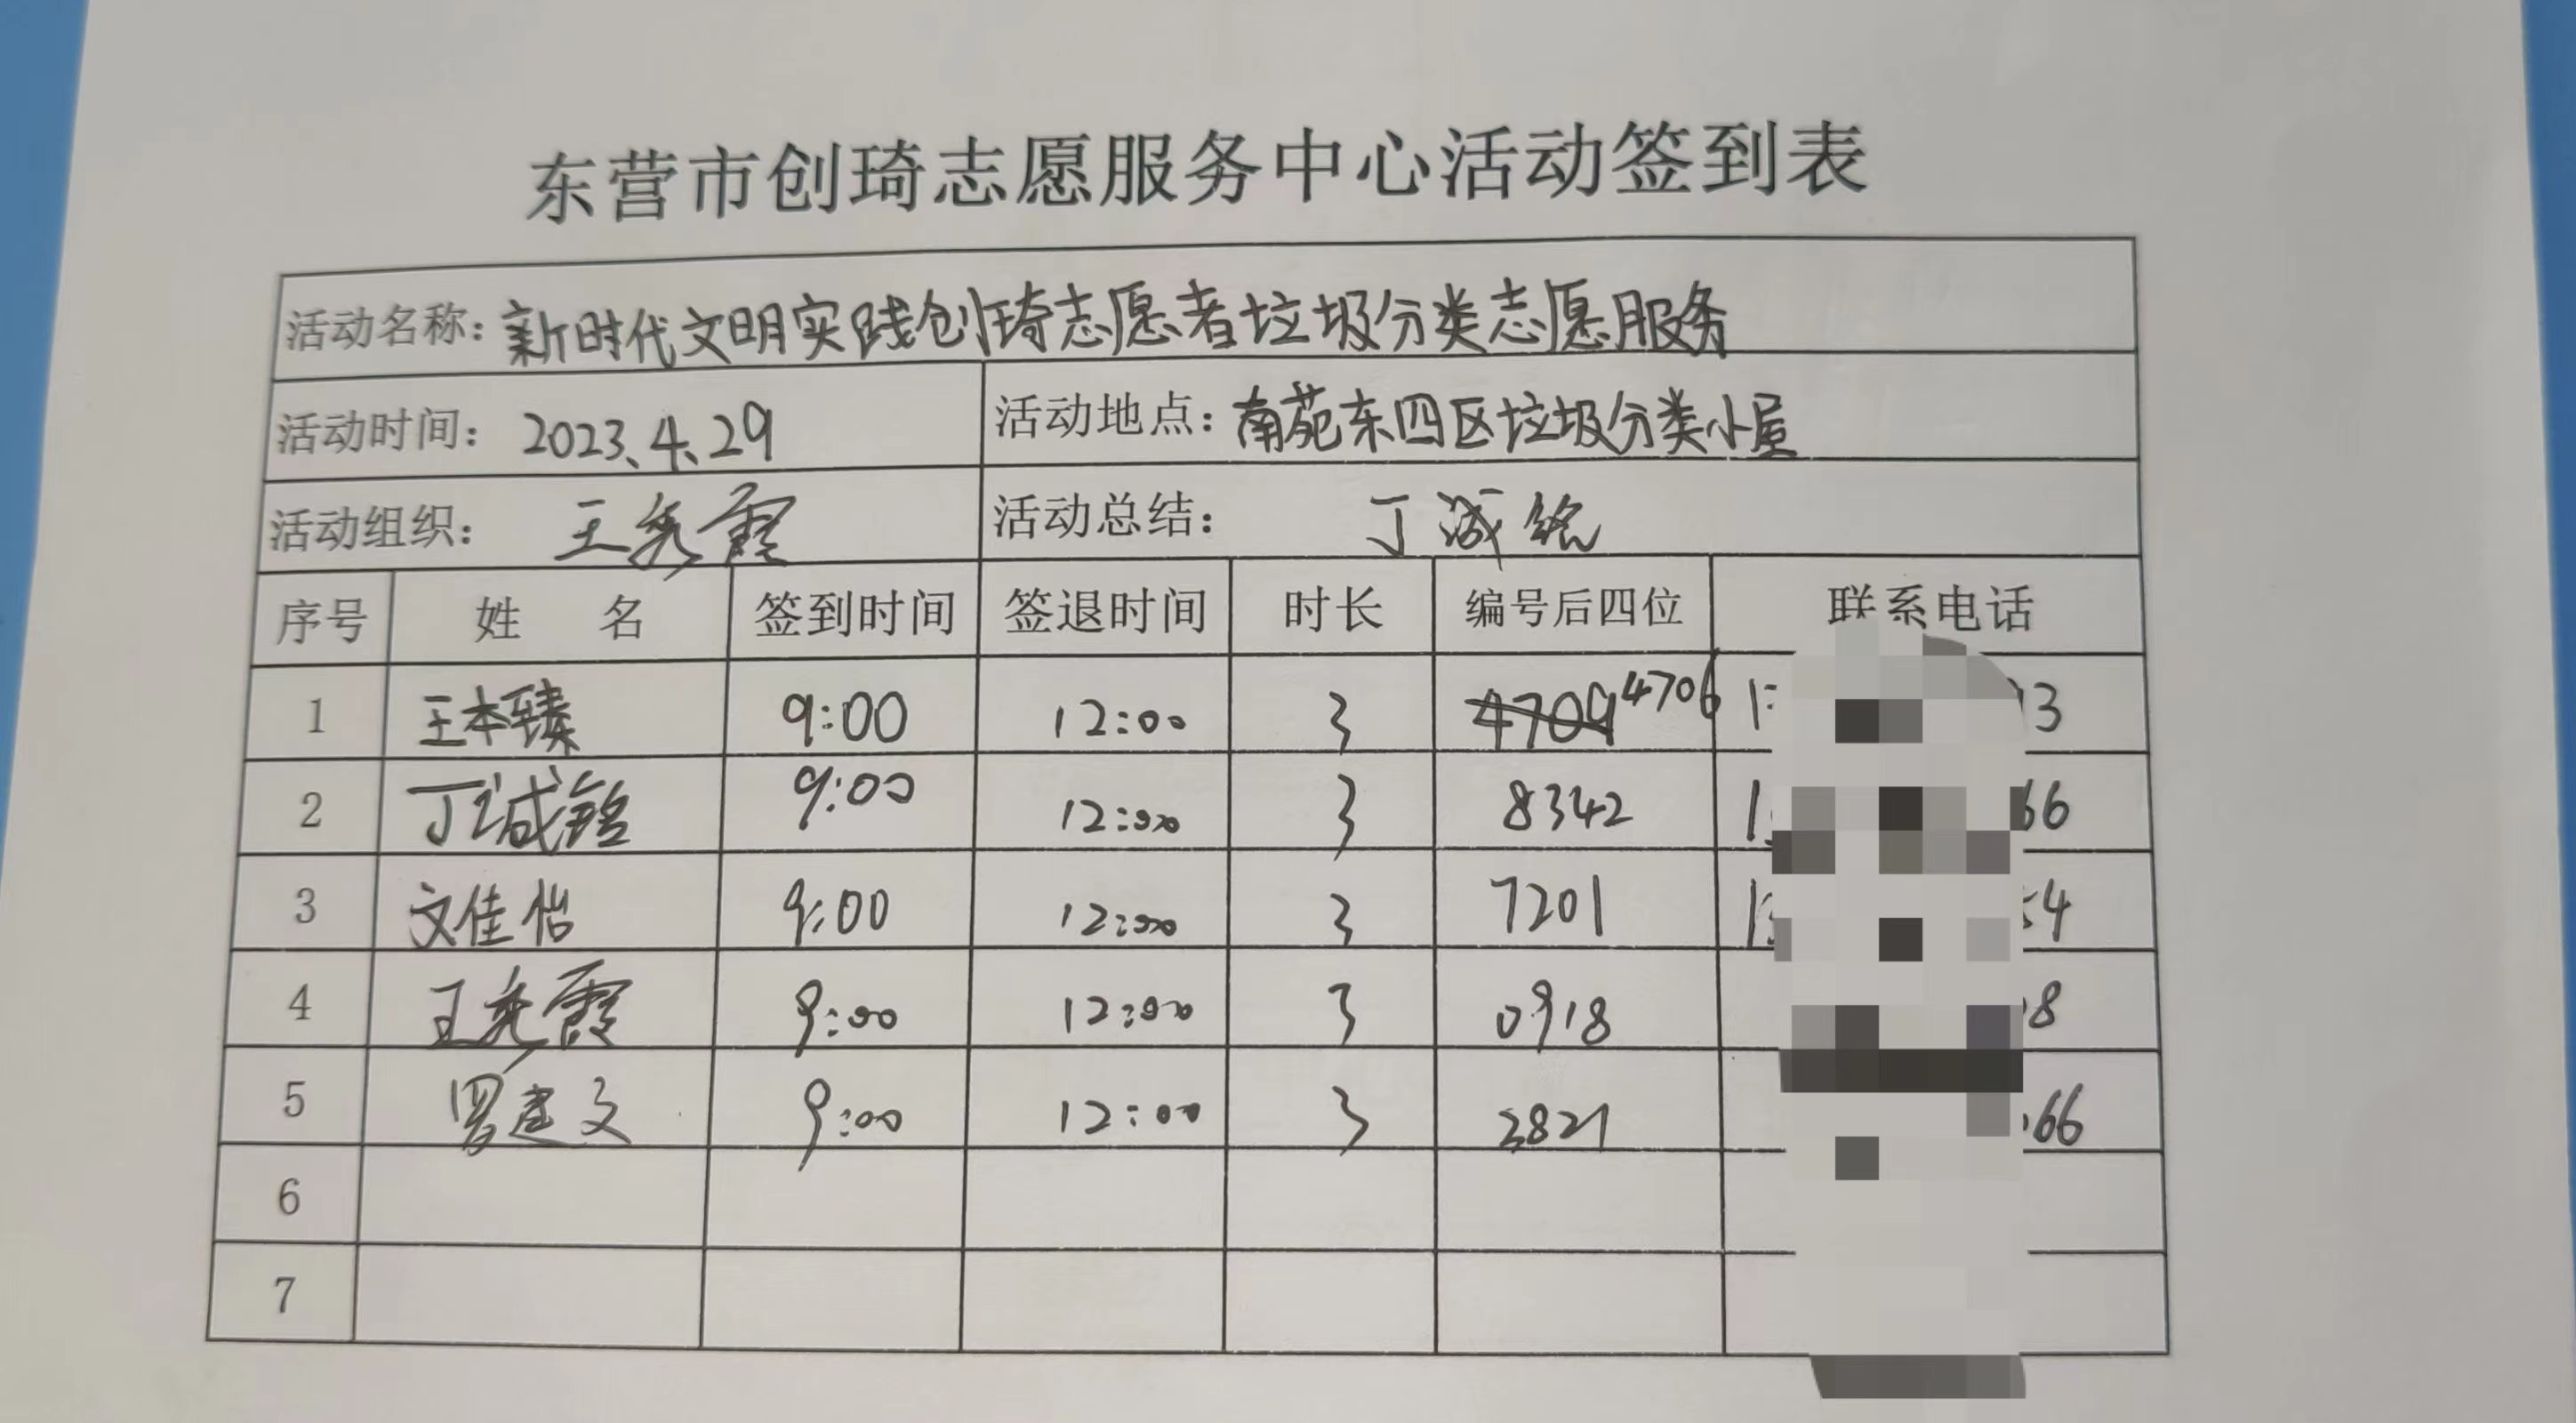 东营市创琦志愿服务中心活动签到表
活动名称：新时代文明实践创琦志愿者垃圾分类志愿服务
活动时间：2023、4、29 活动地点：南苑东四区垃圾分类小屋
活动组织：王秀霞 活动总结：丁诚铭
序号 姓 名 签到时间 签退时间 时长 编号后四位 联系电话
1 王本臻 9:00 12:00 3 4709 4706 1 3
2 丁诚铭 9:00 12:00 3 8342 1 66
3 文佳怡 9:00 12:00 3 7201 1 4
4 王秀霞 9:00 12:00 3 0918 8
5 罗建文 9:00 12:00 3 2821 66
6
7